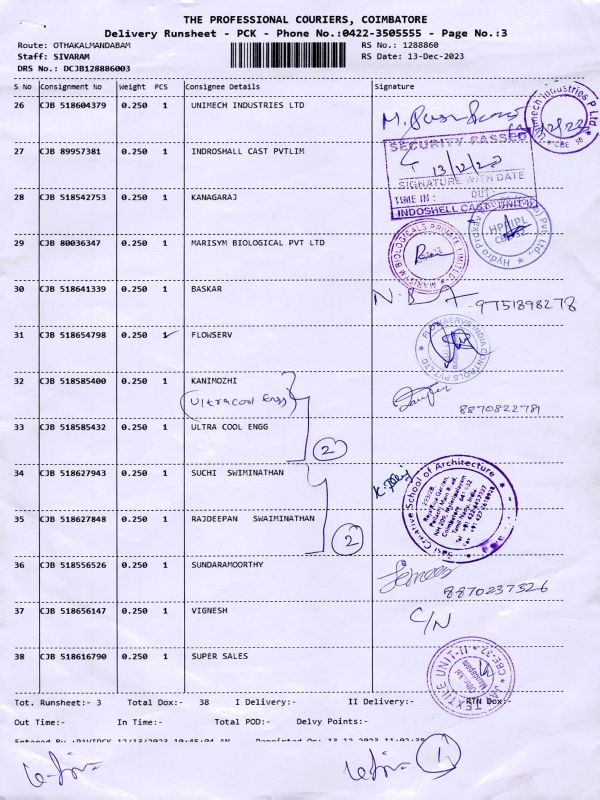 THE PROFESSIONAL COURIERS, COIMBATORE
Delivery Runsheet - PCK - Phone No.:0422-3505555 - Page No.:3
Route: OTHAKALMANDABAM RS No.: 1288860
Staff: SIVARAM RS Date: 13-Dec-2023
DRS No.: DCJB128886003
S No Consignment No Weight PCS Consignee Details Signature
26 CJB 518604379 0.250 1 UNIMECH INDUSTRIES LTD
27 CJB 89957381 0.250 1 INDROSHALL CAST PVTLIM
SECURITY PASSED
13/12/23
SIGNATURE WITH DATE
TIME IN : OUT:
INDOSHELL CAST UNIT-II
28 CJB 518542753 0.250 1 KANAGARAJ
29 CJB 80036347 0.250 1 MARISYM BIOLOGICAL PVT LTD
MARISYM BIOLOGICALS PRIVATE LIMITED
30 CJB 518641339 0.250 1 BASKAR
9751898278
31 CJB 518654798 0.250 1 FLOWSERV
FLOWSERVE INDIA CONTROLS PVT LTD
32 CJB 518585400 0.250 1 KANIMOZHI
(Ultracool Engg)
8870822781
33 CJB 518585432 0.250 1 ULTRA COOL ENGG
2
34 CJB 518627943 0.250 1 SUCHI SWIMINATHAN
Sasi Creative School of Architecture
35 CJB 518627848 0.250 1 RAJDEEPAN SWAIMINATHAN
2
36 CJB 518556526 0.250 1 SUNDARAMOORTHY
8870237326
37 CJB 518656147 0.250 1 VIGNESH
C/N
38 CJB 518616790 0.250 1 SUPER SALES
TEXTILE UNIT-II CBE-32
Tot. Runsheet:- 3 Total Dox:- 38 I Delivery:- II Delivery:- RTN Dox:-
Out Time:- In Time:- Total POD:- Delvy Points:-
1